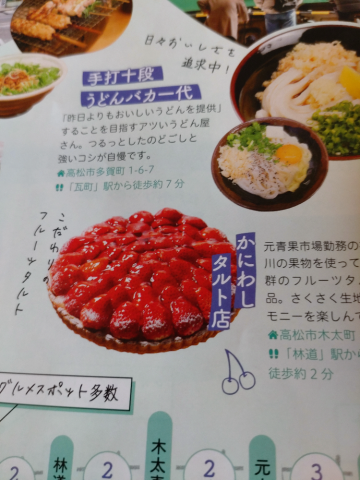 日々おいしさを
追求中！
手打十段
うどんバカ一代
「昨日よりもおいしいうどんを提供」
することを目指すアツいうどん屋
さん。つるっとしたのどごしと
強いコシが自慢です。
高松市多賀町 1-6-7
「瓦町」駅から徒歩約7分
こだわりの
フルーツタルト
かにわし
タルト店
元青果市場勤務の
川の果物を使って
群のフルーツタ
品。さくさく生地
モニーを楽しんで
高松市木太町
「林道」駅から
徒歩約2分
グルメスポット多数
2
林道
2
木太
2
元
3